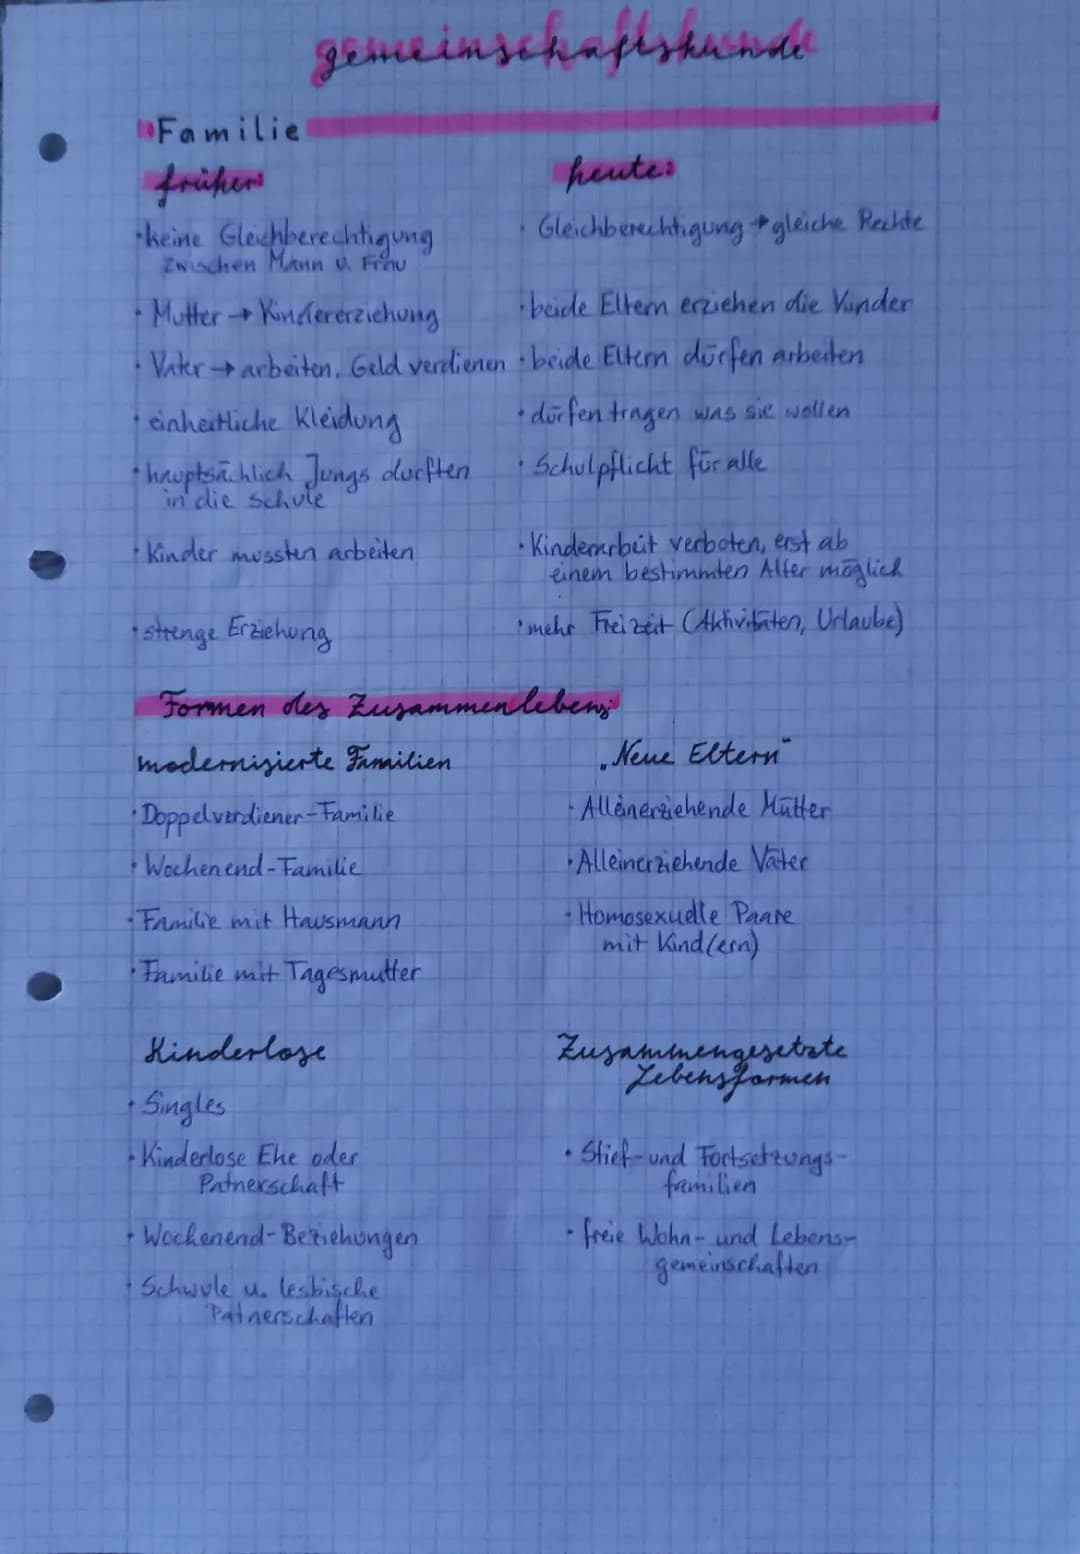 gemeinschaftskunde
Familie
früher:
-keine Gleichberechtigung
zwischen Mann u. Frau
· Mutter → Kindererziehung
· Vater → arbeiten, Geld verdienen
· einheitliche Kleidung
· hauptsächlich Jungs durften
in die Schule
· Kinder mussten arbeiten
· strenge Erziehung
heute:
· Gleichberechtigung → gleiche Rechte
· beide Eltern erziehen die Kinder
· beide Eltern dürfen arbeiten
· dürfen tragen was sie wollen
· Schulpflicht für alle
· Kinderarbeit verboten, erst ab
einem bestimmten Alter möglich
· mehr Freizeit (Aktivitäten, Urlaube)
Formen des Zusammenlebens:
modernisierte Familien
· Doppelverdiener-Familie
· Wochenend-Familie
· Familie mit Hausmann
· Familie mit Tagesmutter
„Neue Eltern"
· Alleinerziehende Mütter
· Alleinerziehende Väter
· Homosexuelle Paare
mit Kind(ern)
Kinderlose
· Singles
· Kinderlose Ehe oder
Patnerschaft
· Wochenend-Beziehungen
· Schwule u. lesbische
Patnerschaften
Zusammengesetzte
Lebensformen
· Stief-und Fortsetzungs-
familien
· freie Wohn- und Lebens-
gemeinschaften